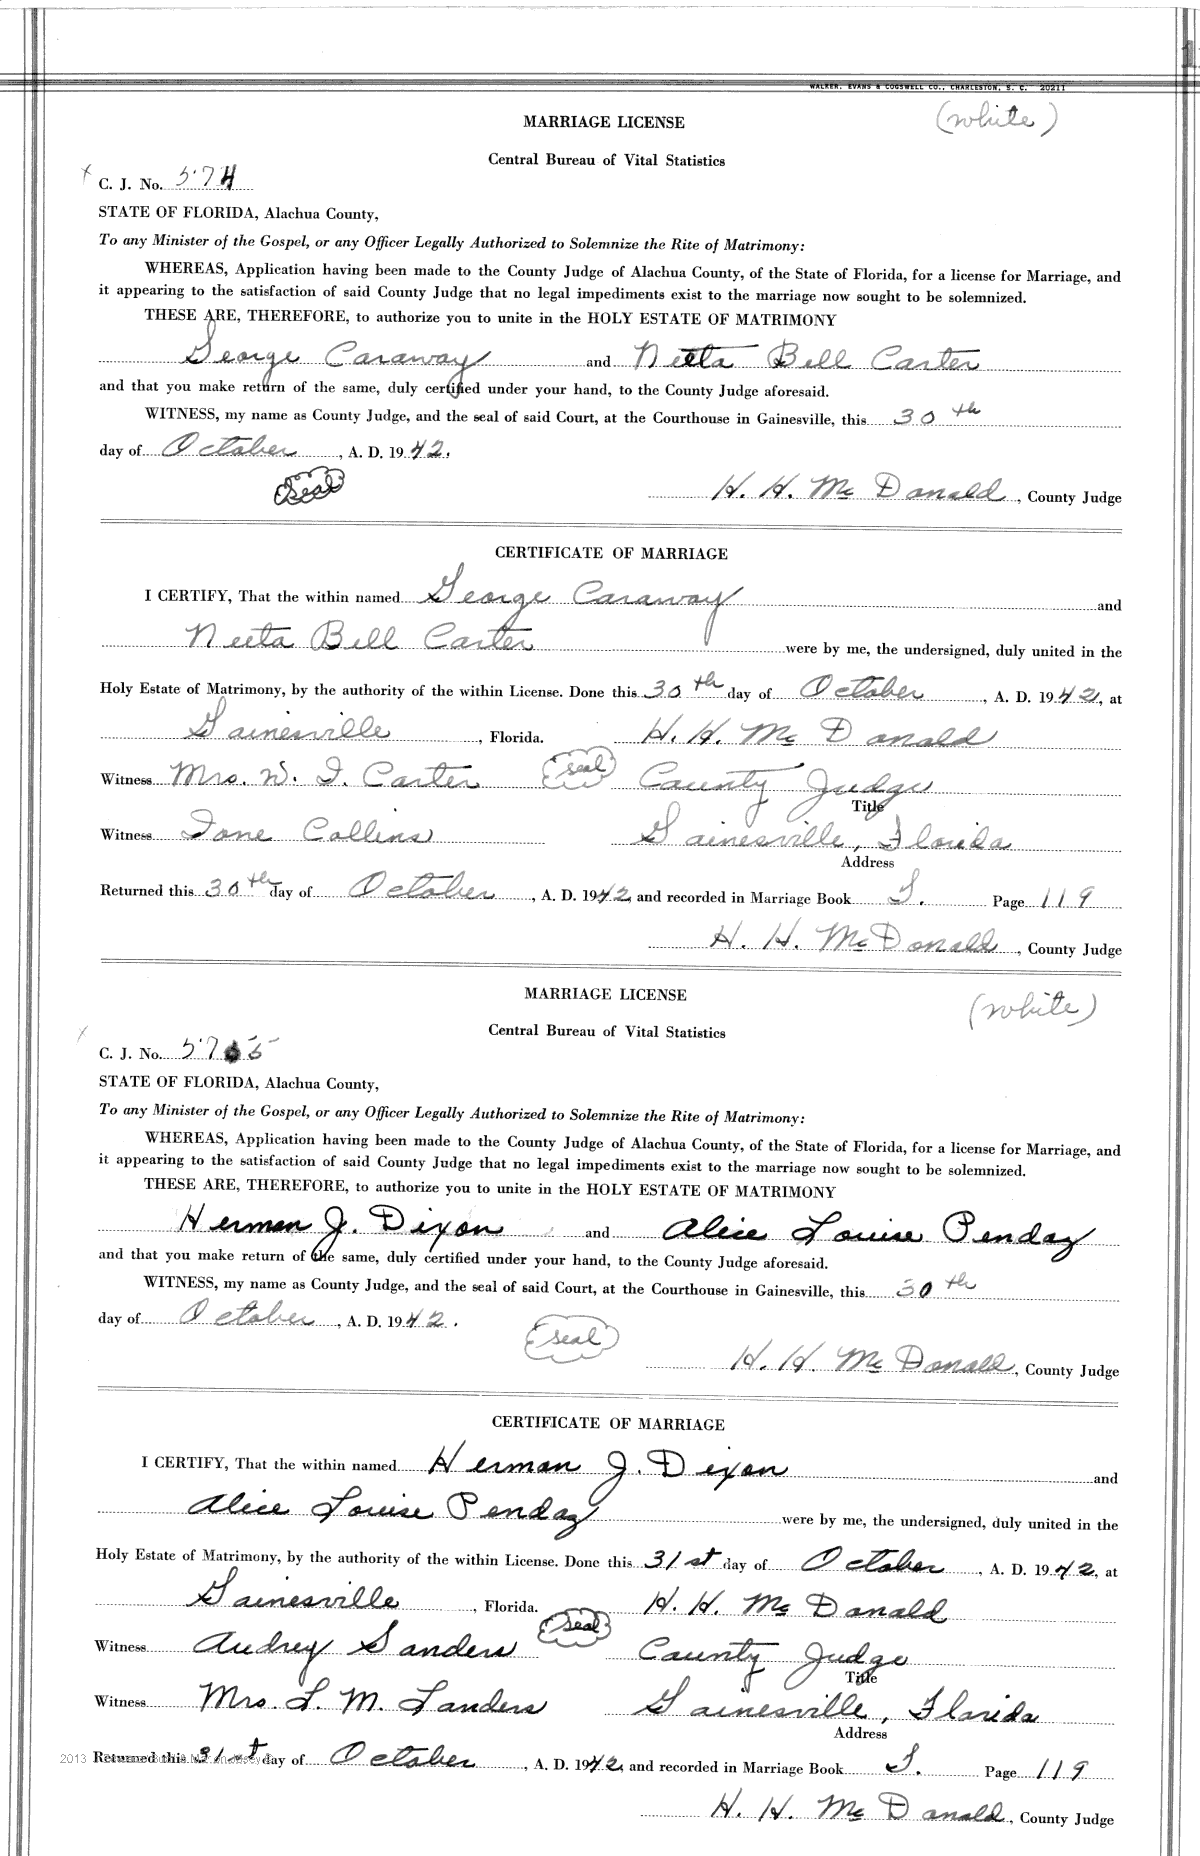 WALKER, EVANS & COGSWELL CO., CHARLESTON, S. C. 20211
MARRIAGE LICENSE
(white)
Central Bureau of Vital Statistics
C. J. No. 574
STATE OF FLORIDA, Alachua County,
To any Minister of the Gospel, or any Officer Legally Authorized to Solemnize the Rite of Matrimony:
WHEREAS, Application having been made to the County Judge of Alachua County, of the State of Florida, for a license for Marriage, and
it appearing to the satisfaction of said County Judge that no legal impediments exist to the marriage now sought to be solemnized.
THESE ARE, THEREFORE, to authorize you to unite in the HOLY ESTATE OF MATRIMONY
George Caraway and Neeta Bell Carter
and that you make return of the same, duly certified under your hand, to the County Judge aforesaid.
WITNESS, my name as County Judge, and the seal of said Court, at the Courthouse in Gainesville, this 30th
day of October, A. D. 1942.
Seal
H. H. McDonald, County Judge
CERTIFICATE OF MARRIAGE
I CERTIFY, That the within named George Caraway and
Neeta Bell Carter were by me, the undersigned, duly united in the
Holy Estate of Matrimony, by the authority of the within License. Done this 30th day of October, A. D. 1942, at
Gainesville, Florida. H. H. McDonald
Witness Mrs. W. I. Carter seal County Judge
Title
Witness Ione Collins Gainesville, Florida
Address
Returned this 30th day of October, A. D. 1942 and recorded in Marriage Book Page 119
H. H. McDonald, County Judge
MARRIAGE LICENSE
(white)
Central Bureau of Vital Statistics
C. J. No. 575
STATE OF FLORIDA, Alachua County,
To any Minister of the Gospel, or any Officer Legally Authorized to Solemnize the Rite of Matrimony:
WHEREAS, Application having been made to the County Judge of Alachua County, of the State of Florida, for a license for Marriage, and
it appearing to the satisfaction of said County Judge that no legal impediments exist to the marriage now sought to be solemnized.
THESE ARE, THEREFORE, to authorize you to unite in the HOLY ESTATE OF MATRIMONY
Herman J. Dixon and Alice Louise Penday
and that you make return of the same, duly certified under your hand, to the County Judge aforesaid.
WITNESS, my name as County Judge, and the seal of said Court, at the Courthouse in Gainesville, this 30th
day of October, A. D. 1942.
Seal
H. H. McDonald, County Judge
CERTIFICATE OF MARRIAGE
I CERTIFY, That the within named Herman J. Dixon and
Alice Louise Penday were by me, the undersigned, duly united in the
Holy Estate of Matrimony, by the authority of the within License. Done this 31st day of October, A. D. 1942, at
Gainesville, Florida. H. H. McDonald
Witness Audrey Sanders Seal County Judge
Title
Witness Mrs. L. M. Landers Gainesville, Florida
Address
2013
Returned this 31st day of October, A. D. 1942, and recorded in Marriage Book Page 119
H. H. McDonald, County Judge